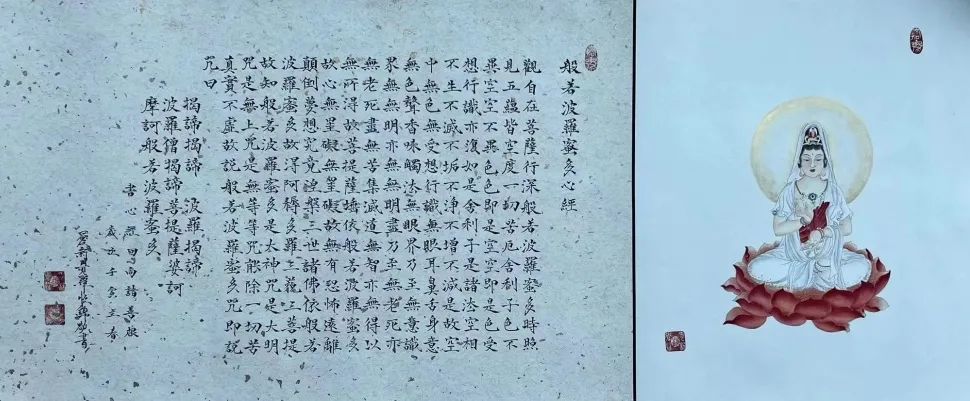 般若波羅蜜多心經
觀自在菩薩行深般若波羅蜜多時照
見五蘊皆空度一切苦厄舍利子色不
異空空不異色色即是空空即是色受
想行識亦復如是舍利子是諸法空相
不生不滅不垢不淨不增不減是故空
中無色無受想行識無眼耳鼻舌身意
無色聲香味觸法無眼界乃至無意識
界無無明亦無無明盡乃至無老死亦
無老死盡無苦集滅道無智亦無得以
無所得故菩提薩埵依般若波羅蜜多
故心無罣礙無罣礙故無有恐怖遠離
顛倒夢想究竟涅槃三世諸佛依般若
波羅蜜多故得阿耨多羅三藐三菩提
故知般若波羅蜜多是大神咒是大明
咒是無上咒是無等等咒能除一切苦
真實不虛故說般若波羅蜜多咒即說
咒曰
揭諦揭諦 波羅揭諦
波羅僧揭諦菩提薩婆訶
摩訶般若波羅蜜多
書心經回向諸善
歲在壬寅之春